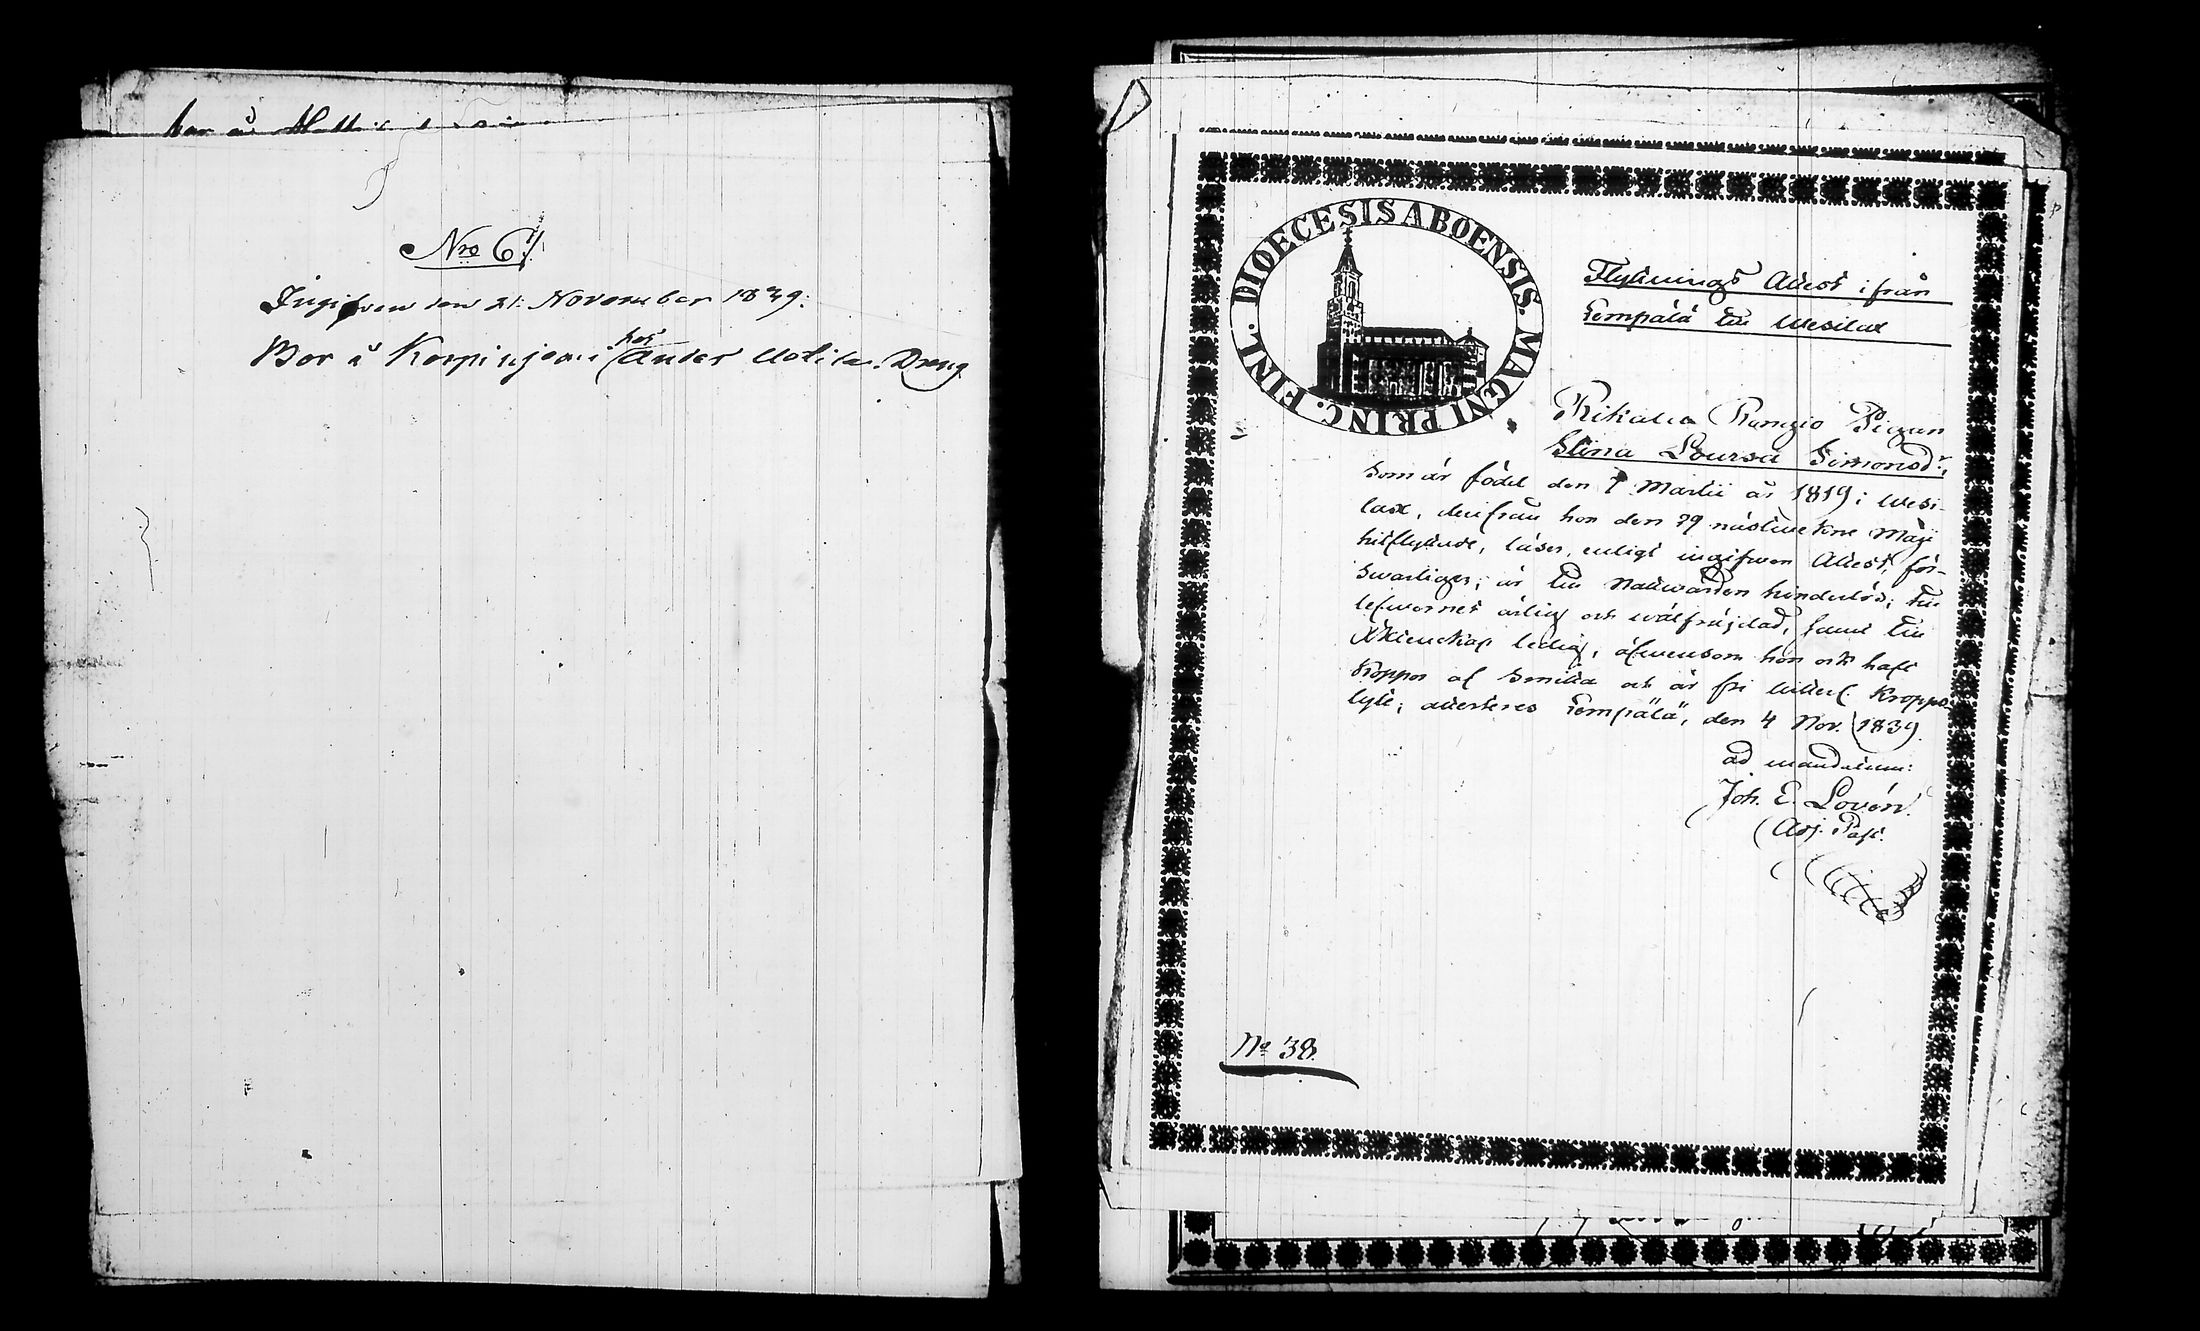 Nro 67.
Ingifven den 21. November 1839:
hos
Bor å Korpikyoni Anders Uotila. Dreng
DIOECESIS ABOENSIS. MAGNI PRINC. FINL.
Flyttnings Attest ifrån
Lempälä till Wesilax
Kikala Pigan
Stina Lovisa Simonsdr,
som är född den 7 Martii år 1819 i Wesi-
lax, derifrån hon den 29 nästwekne Maji
hitflyttade, läser, enligt ingifwen Attest, för-
swarligen; är till Nattwarden hinderlös; till
lefwernet ärlig och wälfräjdad, samt till
Äktenskap ledig, äfwensom hon ock haft
Koppor af Smitta och är fri ifrån Kropps-
lyte; attesteres Lempälä, den 4 Nov. 1839.
ad mandatum:
Joh. E. Lovén.
Adj. Past.
No 38.